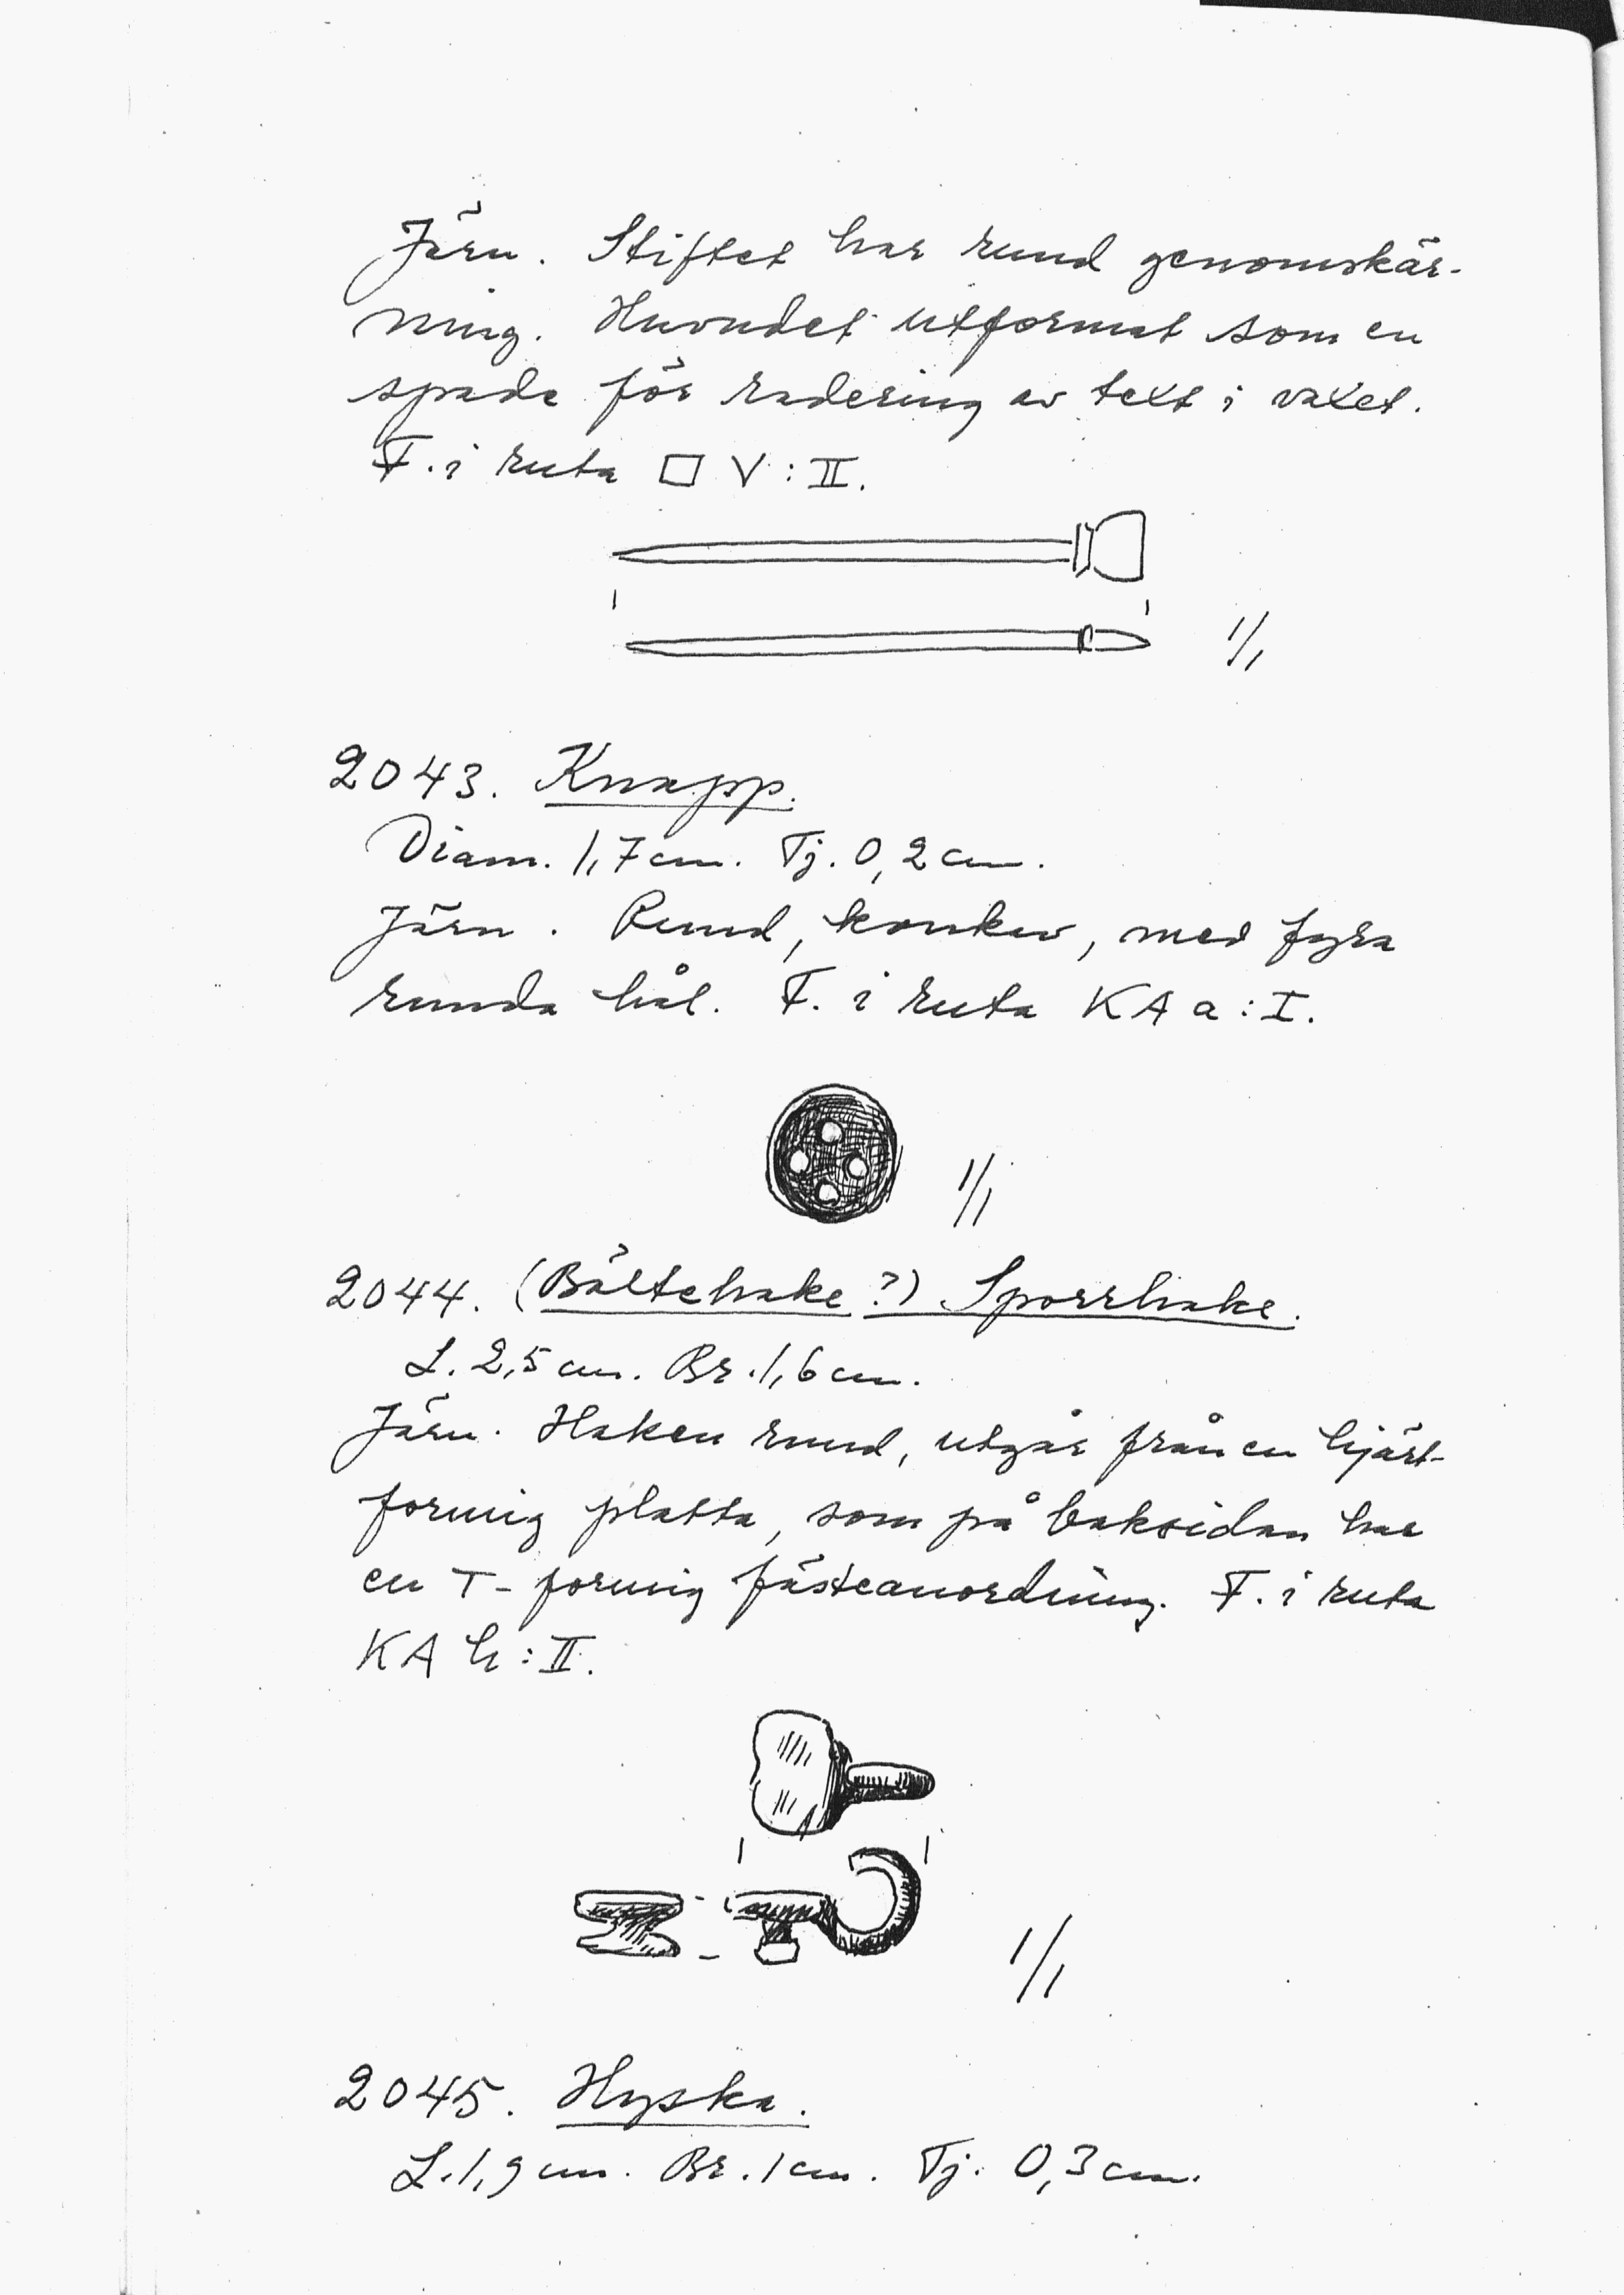 Järn. Stiftet har rund genomskär-
ning. Huvudet utformat som en
spade för radering av text i vaxet.
F. i ruta □ V : II.
1/1
2043. Knapp.
Diam. 1,7 cm. Tj. 0,2 cm.
Järn. Rund, konkav, med fyra
runda hål. F. i ruta KA a : I.
1/1
2044. (Bältehake ?) Sporrhake.
L. 2,5 cm. Br. 1,6 cm.
Järn. Haken rund, utgår från en hjärt-
formig platta, som på baksidan har
en T-formig fästeanordning. F. i ruta
KA h : II.
1/1
2045. Hyska.
L. 1,9 cm. Br. 1 cm. Tj. 0,3 cm.